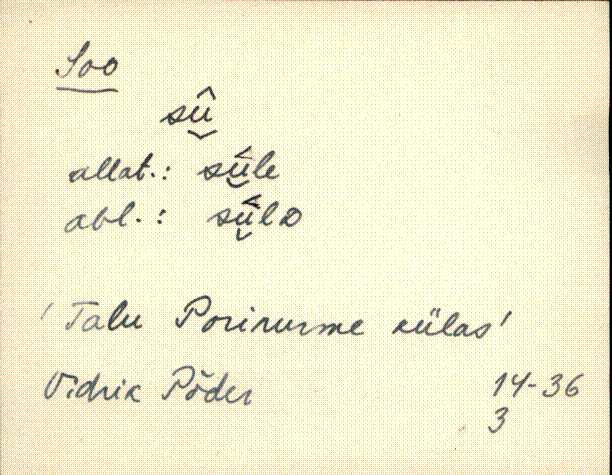 Soo
sû̬
allat.: sù̬le
abl.: sù̬lᴅ
'Talu Porirurme külas'
Vidrik Põder 14-36
3